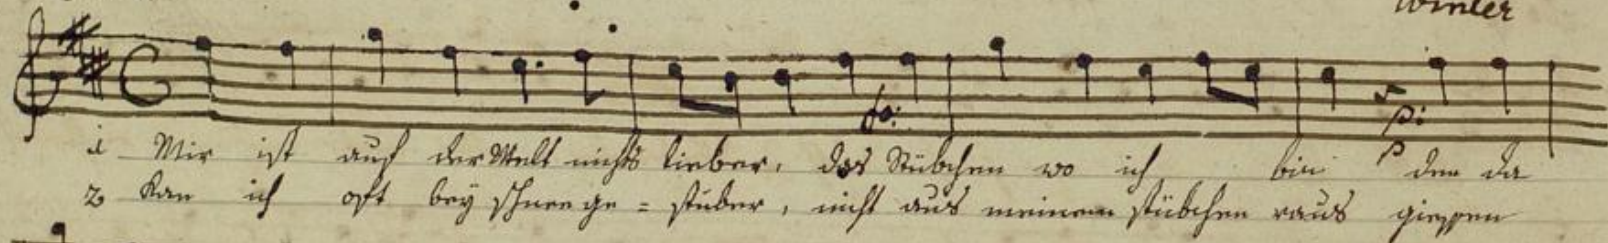 Winter
fo:
p:
1 Mir ist auf der Welt nichts lieber, das Stübchen wo ich bin den da
2 Kan ich oft bey schnee ge = stüber, nicht aus meinem stübchen raus